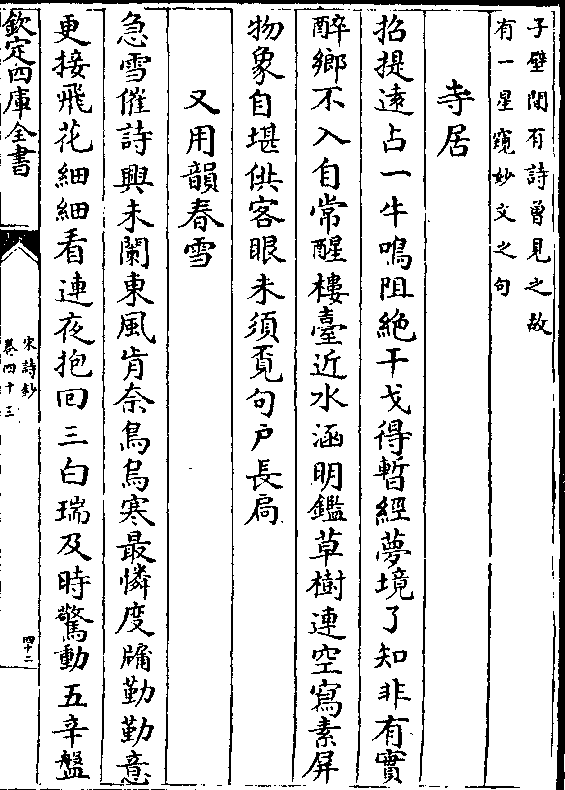 子壁間有詩曾見之故
有一星窺妙文之句
寺居
招提遠占一牛鳴阻絶干戈得暫經夢境了知非有實
醉鄉不入自常醒樓臺近水涵明鑑草樹連空寫素屏
物象自堪供客眼未須覓句戸長扃
又用韻春雪
急雪催詩興未闌東風肯奈鳥烏寒最憐度牖勤勤意
更接飛花細細看連夜抱回三白瑞及時驚動五辛盤
欽定四庫全書
宋詩鈔
卷四十三
四十二